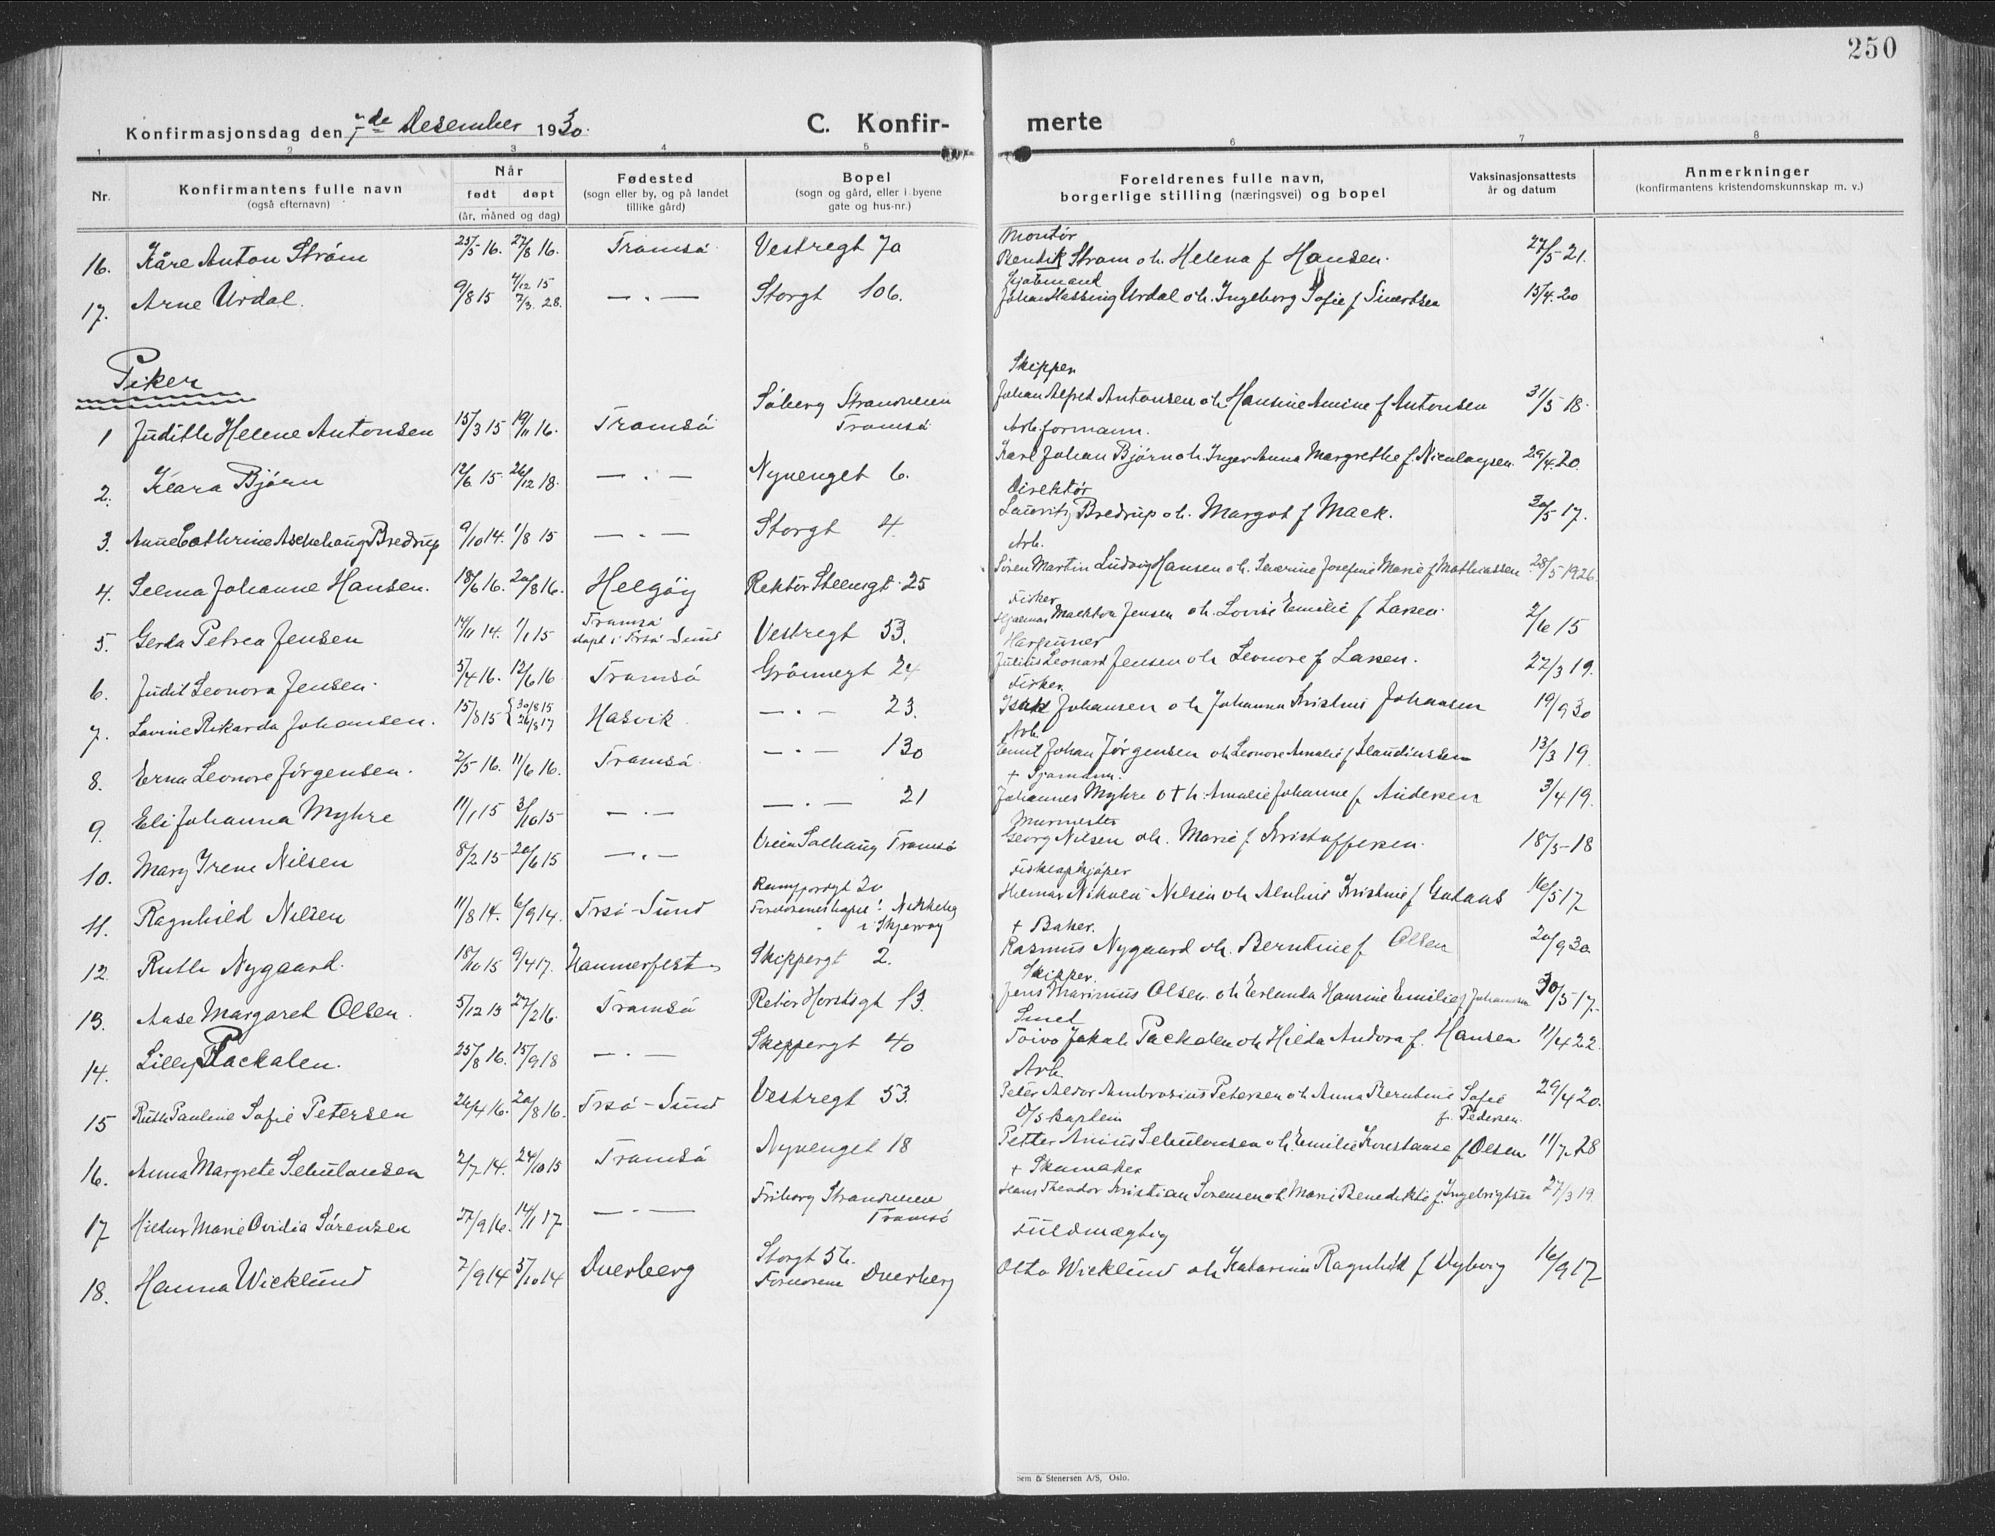 250
Konfirmasjonsdag den 7de Desember 1930.
C. Konfir-
merte
1 2 3 4 5 6 7 8
Nr.
Konfirmantens fulle navn
(også efternavn)
Når
født døpt
(år, måned og dag)
Fødested
(sogn eller by, og på landet
tillike gård)
Bopel
(sogn og gård, eller i byene
gate og hus-nr.)
Foreldrenes fulle navn,
borgerlige stilling (næringsvei) og bopel
Vaksinasjonsattests
år og datum
Anmerkninger
(konfirmantens kristendomskunnskap m. v.)
Montør
16. Kåre Anton Strøm 25/5 16. 27/8 16. Tromsø Vestregt 70 Strøm o h. Helena f Hansen. 27/5-21.
17. Arne Urdal. 9/8 15 4/12 15 7/3. 28. — " — Storgt 106. Johan Urdal o h. Ingeborg Sofie f Sivertsen 15/4.20
Piker
Skipper
1 Judith Helene Antonsen 15/3 15 19/11 16. Tromsø Solberg Strandveien Tromsø Johan Alfred Antonsen o h Hansine Amine f Antonsen 31/5 18.
Arb. formann.
2. Klara Bjørn 12/6 15 26/12 18. — " — Nyvenget 6. Karl Johan Bjørn o h. Inger Anna Margrethe f. Nicolaysen. 29/4.20.
Direktør
3. Anne Cathrine Aschehoug Bredrup 9/10 14. 1/8 15 — " — Storgt 4. Lauritz Bredrup o h. Margot f Mack. 30/5 17.
Arb.
4. Selma Johanne Hansen. 18/6 16. 20/8 16. Helgøy Rektor Steensgt. 25 Søren Martin Ludvig Hansen o h. Severine Josefine Marie f Mathiassen 28/5 1926.
Fisker
5. Gerda Petrea Jensen 14/11 14. 1/1 15 Tromsø døpt i Trsø-Sund Vestregt 53. Hjalmar Jensen o h. Lovise Emilie f Larsen. 2/6 15
Harpuner
6. Judit Leonora Jensen. 5/4 16. 12/6 16 Tromsø Grønnegt 24 Julius Leonard Jensen o h Leonore f Larsen. 27/3 19.
Fisker
7. Lovine Rikarda Johansen. 15/8 15 30/8 15 26/8 17 Hasvik — " — 23. Isak Johansen o h Johanna Kristine Johansen 19/9 30
Arb.
8. Erna Leonore Jørgensen. 2/5 16. 11/6 16. Tromsø — " — 130 Johan Jørgensen o h Leonore Amalie f Klaudiussen 13/3 19.
+ Sjømann.
9. Eli Johanna Myhre 11/1 15 3/10 15 — " — — " — 21 Johannes Myhre o + h. Amalie Johanne f. Andersen 3/4 19.
Murmester
10. Mary Irene Nilsen 8/2 15 20/6 15 — " — Solhaug Tromsø Georg Nilsen o h. Marie f Kristoffersen. 18/5-18
Fiskeopkjøper
11. Ragnhild Nilsen 11/8 14. 6/9 14. Trsø-Sund Ramfjordgt 20 i Skjervøy Nikolai Nilsen o h Kristine f 16/5 17
+ Baker.
12. Ruth Nygaard. 18/10 15 9/4 17. Hammerfest Skippergt 2. Rasmus Nygaard o h. Berntine f Olsen 20/9 30.
Skipper.
13. Aase Margaret Olsen. 5/12 13 27/2 16. Tromsø Horstsgt 13. Jens Marinius Olsen o h Erlanda Hansine Emilie f Johannesen 30/5 17.
Smed
14. Lilly Packalen. 25/8 16. 15/9 18 — " — Skippergt 40 Toivo Jakob Packalen o h Hilda Andora f. Hansen 11/4 22.
Arb.
15 Ruth Pauline Sofie Petersen 26/4 16. 20/8 16. Trsø-Sund Vestregt 53. Peter Aldor Ambrosius Petersen o h Anna Berntine Sofie f. Pedersen. 29/4 20.
D/S kaptein
16. Anna Margrete Schulansen 2/7 14. 24/10 15 Tromsø Nyvenget 18 Petter Schulansen o h. Emilie f Olsen 11/7.28
+ Skomaker
17 Hildur Marie Ovidia Sørensen 27/9 16. 14/1 17 — " — Friborg Strandveien Tromsø Hans Theodor Kristian Sørensen o h. Marie Benedikte f. Ingebrigtsen 27/3 19.
Fuldmægtig
18. Hanna Wicklund 7/9 14 5/10 14 Dverberg Storgt 56. Foreldrene Dverberg Otto Wicklund o h Katarina Ragnhild f Dyborg 16/9 17
Sem & Stenersen A/S, Oslo.